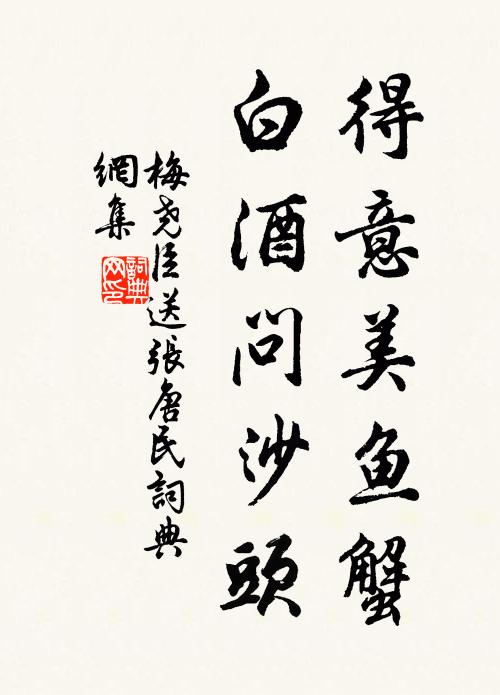 得意美鱼蟹
白酒問沙頭
梅尧臣送張唐民詞典
網集
詞典
网印